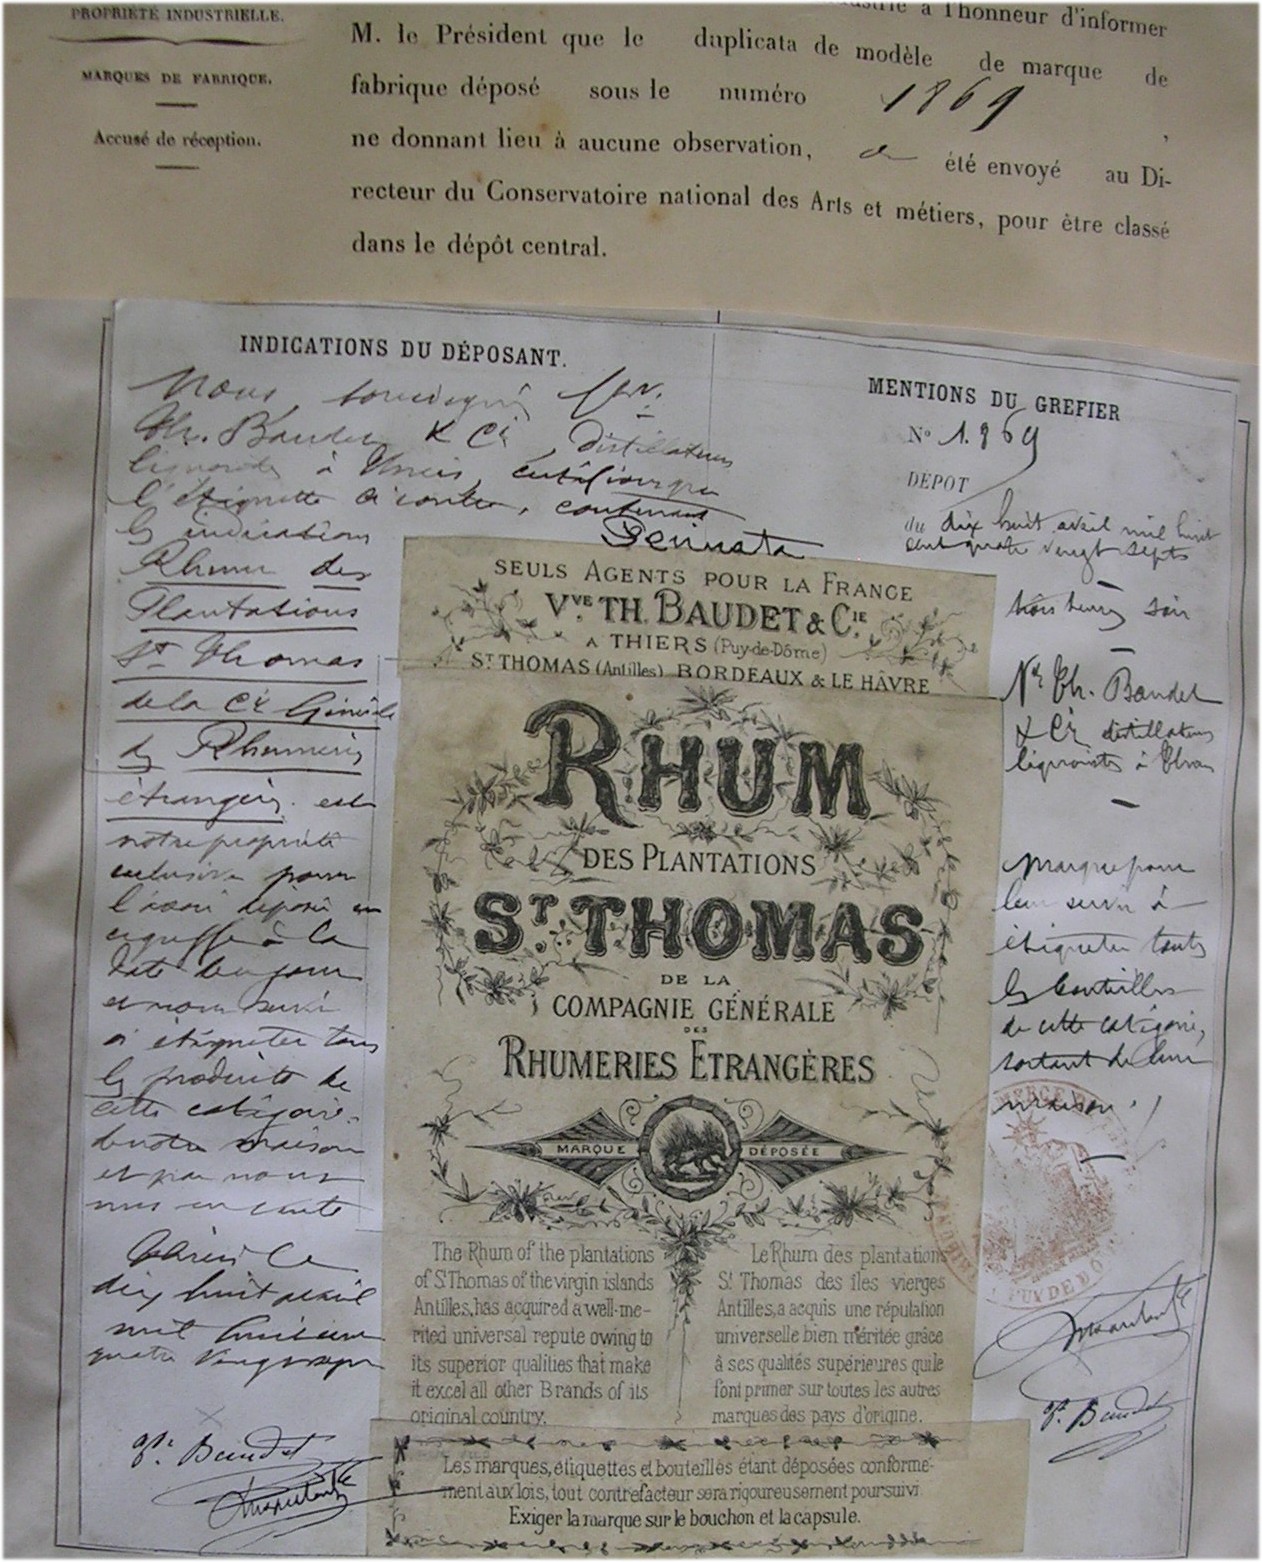 PROPRIÉTÉ INDUSTRIELLE.
MARQUES DE FABRIQUE.
Accusé de réception.
a l'honneur d'informer
M. le Président que le duplicata de modèle de marque de
fabrique déposé sous le numéro 1869,
ne donnant lieu à aucune observation, a été envoyé au Di-
recteur du Conservatoire national des Arts et métiers, pour être classé
dans le dépôt central.
INDICATIONS DU DÉPOSANT.
Nous soussignés
Th. Baudet & Cie distillateurs
à
l'étiquette ci contre, contenant
les indications
Rhum des
Plantations
St Thomas
de la Cie Générale
des Rhumeries
étrangères est
notre propriété
exclusive pour
l'avoir déposé au
greffe à la
date de ce jour
et nous servir
à étiqueter tous
les produits de
cette catégorie
de notre maison
et par nous
mis en vente
Thiers le
dix huit avril
mil huit cent
quatre vingt sept
Baudet
MENTIONS DU GREFIER
No 1.869
DÉPOT
du dix huit avril mil huit
cent quatre vingt sept
trois heures soir
Th. Baudet
& Cie distillateurs
liquoristes à Thiers
Marque pour
leur servir à
étiqueter toutes
les bouteilles
de cette catégorie,
sortant de leur
maison.
PUY DE DÔ
Baudet
SEULS AGENTS POUR LA FRANCE
VVE TH. BAUDET & CIE.
A THIERS (Puy-de-Dôme)
ST THOMAS (Antilles) BORDEAUX & LE HÂVRE
RHUM
DES PLANTATIONS
ST. THOMAS
DE LA
COMPAGNIE GÉNÉRALE
DES
RHUMERIES ETRANGÈRES
MARQUE DÉPOSÉE
The Rhum of the plantations
of St Thomas of the virgin islands
Antilles, has acquired a well-me-
rited universal repute owing to
its superior qualities that make
it excel all other Brands of its
original country.
Le Rhum des plantations
St Thomas des îles vierges
Antilles, a acquis une réputation
universelle bien méritée grâce
à ses qualités supérieures qui le
font primer sur toutes les autres
marques des pays d'origine.
Les marques, étiquettes et bouteilles étant déposées conformé-
ment aux lois, tout contrefacteur sera rigoureusement poursuivi
Exiger la marque sur le bouchon et la capsule.